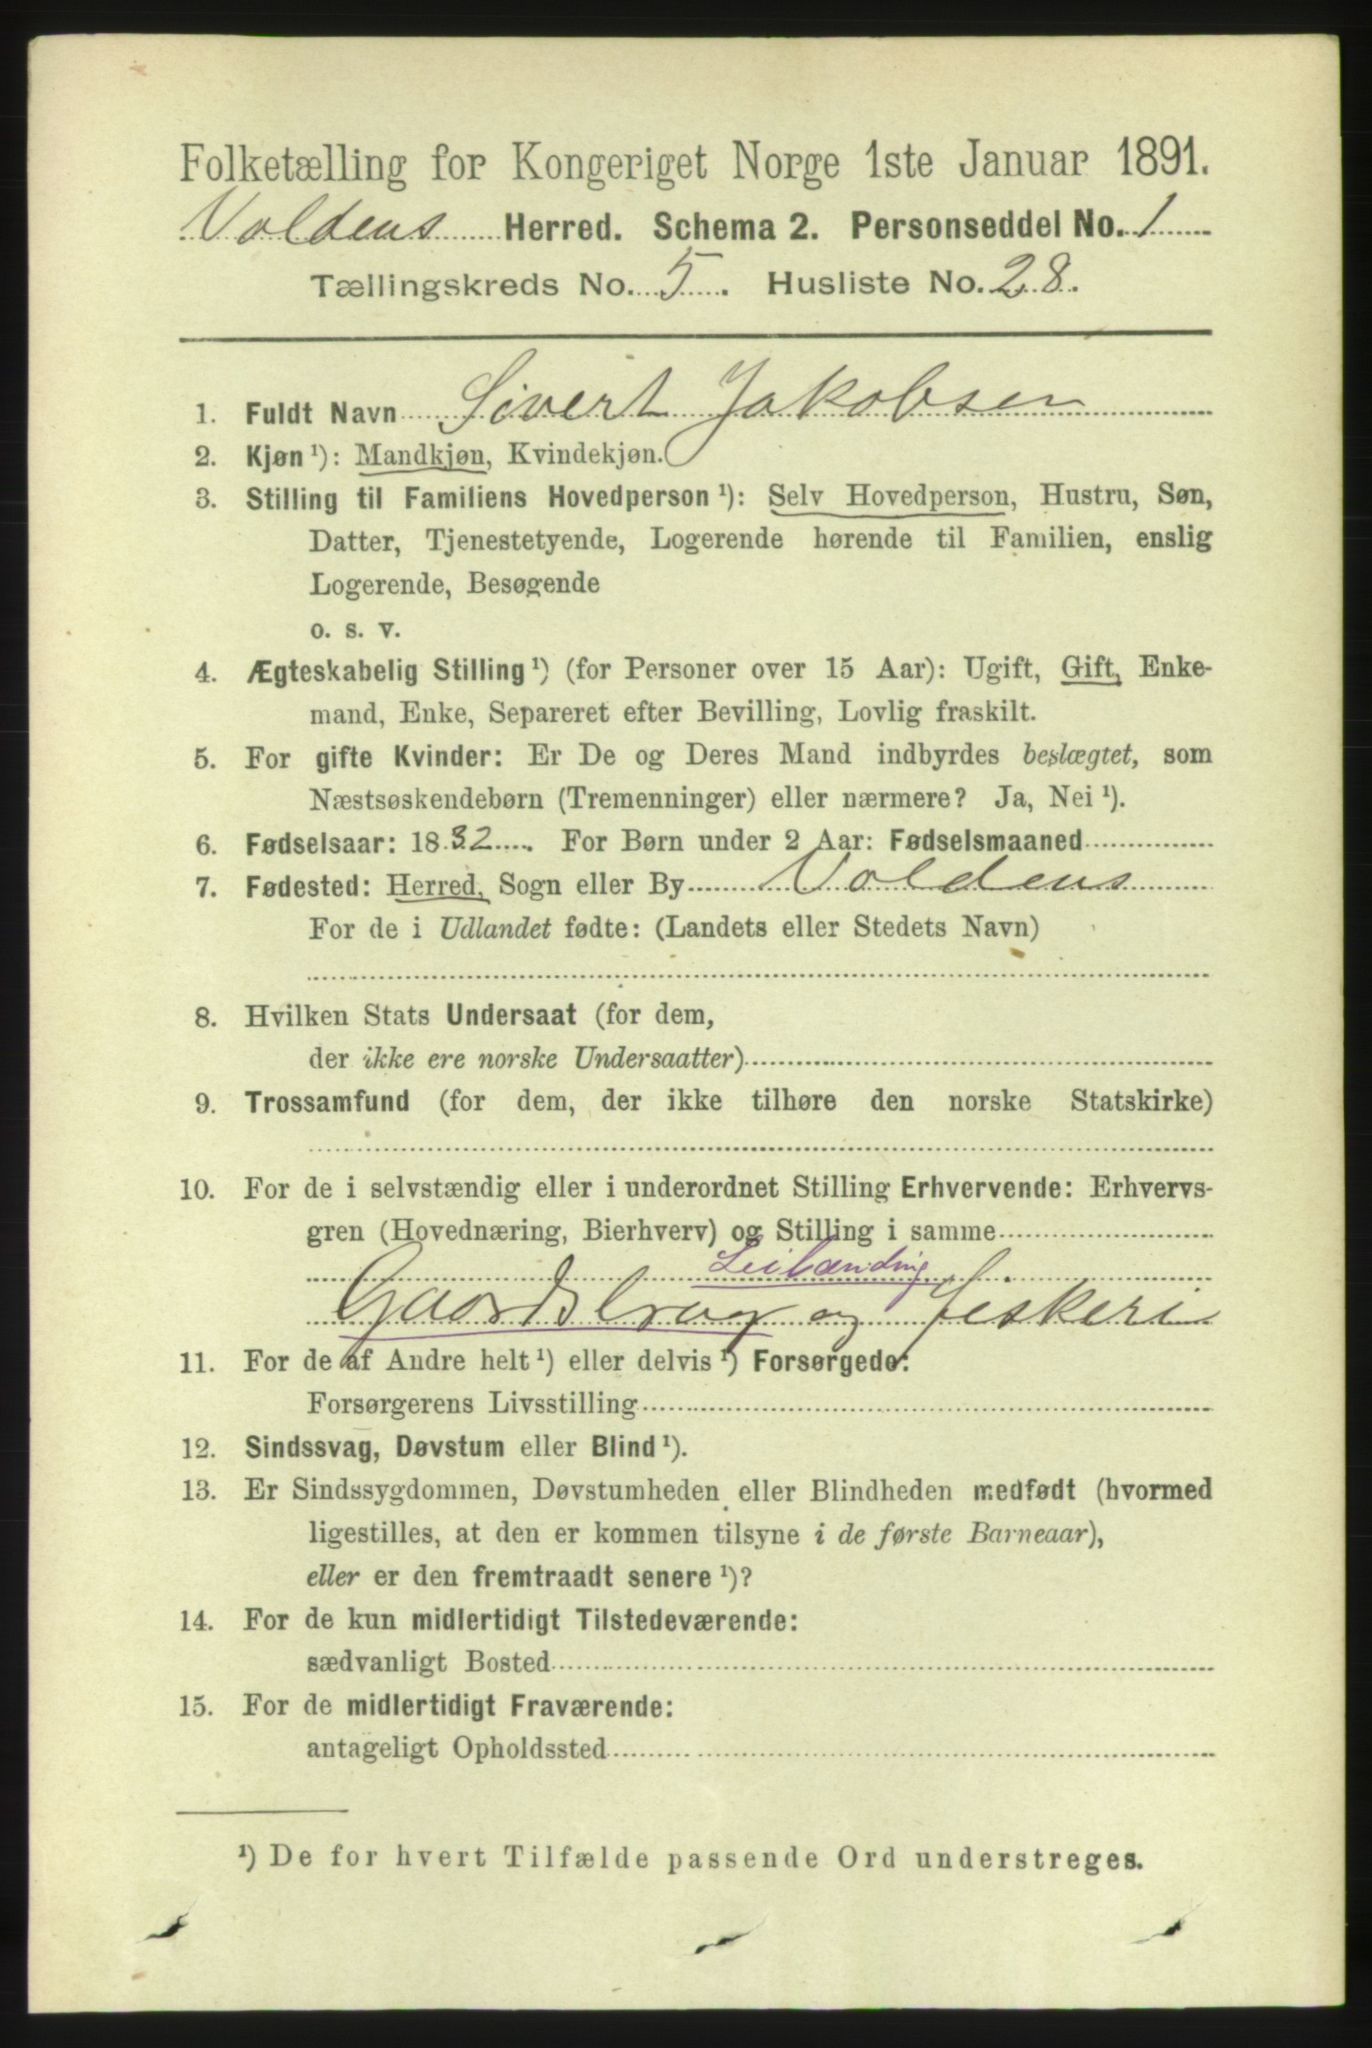 Folketælling for Kongeriget Norge 1ste Januar 1891.
Voldens Herred. Schema 2. Personseddel No. 1
Tællingskreds No. 5. Husliste No. 28.
1. Fuldt Navn Sivert Jakobsen
2. Kjøn ¹): Mandkjøn, Kvindekjøn.
3. Stilling til Familiens Hovedperson ¹): Selv Hovedperson, Hustru, Søn,
Datter, Tjenestetyende, Logerende hørende til Familien, enslig
Logerende, Besøgende
o. s. v.
4. Ægteskabelig Stilling ¹) (for Personer over 15 Aar): Ugift, Gift, Enke-
mand, Enke, Separeret efter Bevilling, Lovlig fraskilt.
5. For gifte Kvinder: Er De og Deres Mand indbyrdes beslægtet, som
Næstsøskendebørn (Tremenninger) eller nærmere? Ja, Nei ¹).
6. Fødselsaar: 1832. For Børn under 2 Aar: Fødselsmaaned
7. Fødested: Herred, Sogn eller By Voldens
For de i Udlandet fødte: (Landets eller Stedets Navn)
8. Hvilken Stats Undersaat (for dem,
der ikke ere norske Undersaatter)
9. Trossamfund (for dem, der ikke tilhøre den norske Statskirke)
10. For de i selvstændig eller i underordnet Stilling Erhvervende: Erhvervs-
gren (Hovednæring, Bierhverv) og Stilling i samme
Leilænding
Gaardsbrug og Fiskeri
11. For de af Andre helt ¹) eller delvis ¹) Forsørgede:
Forsørgerens Livsstilling
12. Sindssvag, Døvstum eller Blind ¹).
13. Er Sindssygdommen, Døvstumheden eller Blindheden medfødt (hvormed
ligestilles, at den er kommen tilsyne i de første Barneaar),
eller er den fremtraadt senere ¹)?
14. For de kun midlertidigt Tilstedeværende:
sædvanligt Bosted
15. For de midlertidigt Fraværende:
antageligt Opholdssted
¹) De for hvert Tilfælde passende Ord understreges.